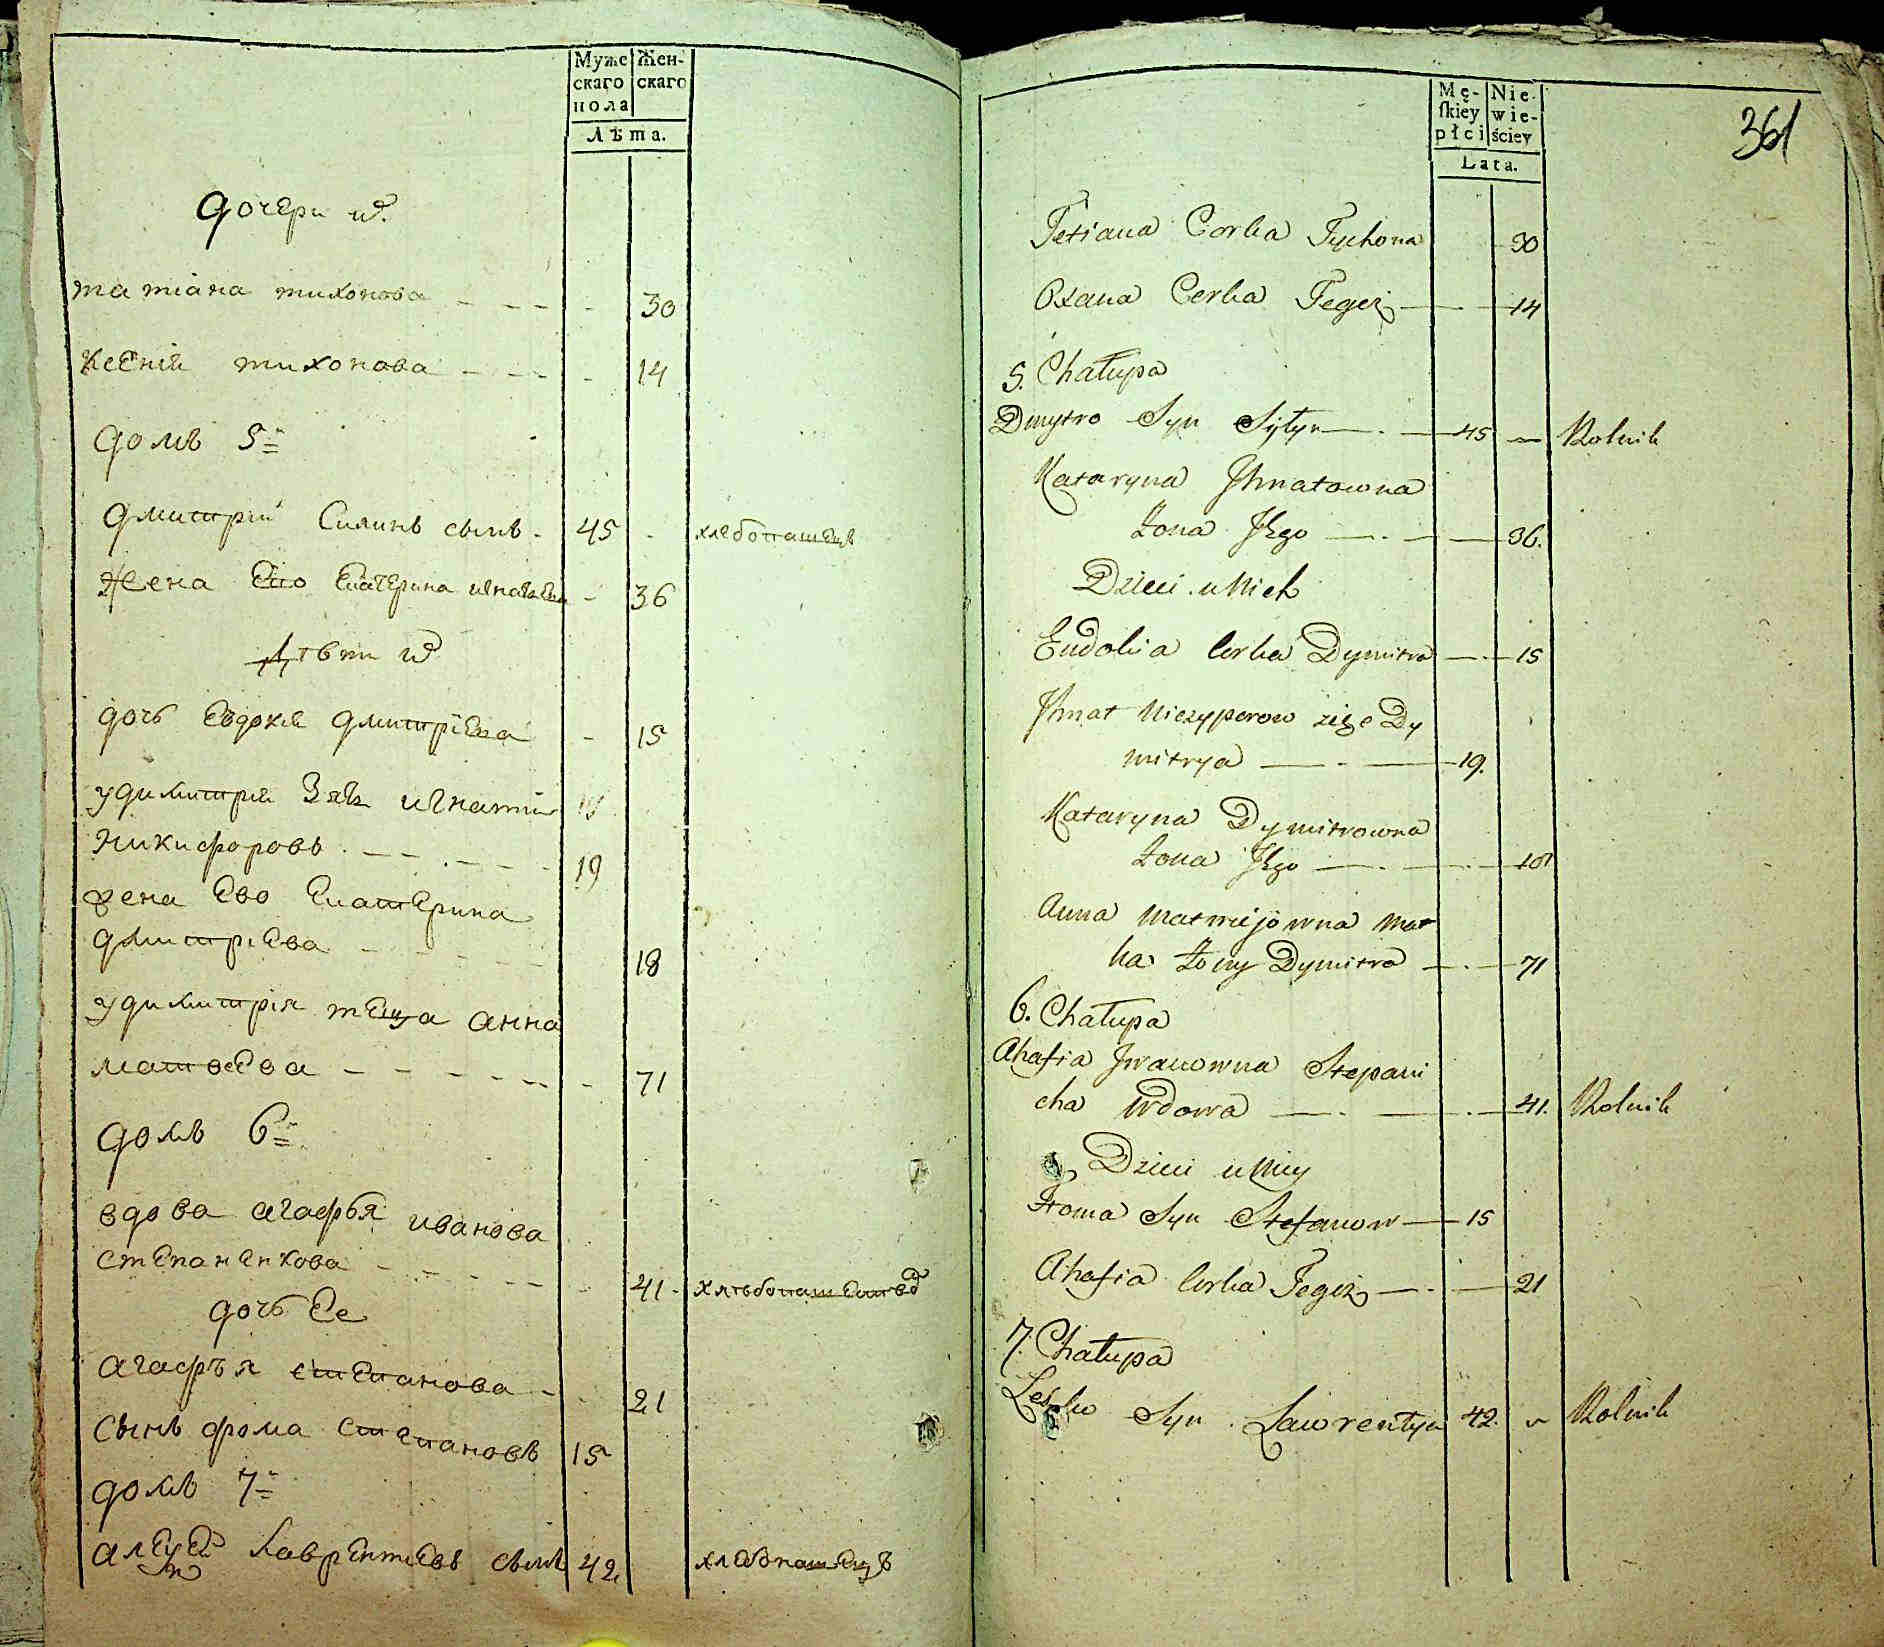 Муже Жен-
скаго скаго
пола
Лѣта.
дочери их
татіана тихонова - - - - 30
ксеніи тихонова - - - - 14
домъ 5й
дмитрій Силинъ сынъ - 45 - хлебопашецъ
жена Ево Екатерина игнатьева - 36
Дѣти их
дочь Евдокия дмитріева - 15
у димитрия Зять игнатий
Никифоровъ - - - - 19
жена Ево Екатерина
дмитріева - - - - 18
у димитрія теща анна
матвеева - - - - - 71
домъ 6й
вдова агафья иванова
степаненкова - - - - - 41 - хлебопашество
дочь Ее
агафъя степанова - - 21
сынъ фома степановъ 15
домъ 7й
алексей лаврентиевъ сынъ 42 хлебопашецъ
Mę- Nie-
ſkiey wie-
płci ściey
Lata.
361
Tetiana Corka Tychona 30
Oxana Corka Tegoż — 14
5. Chałupa
Dmytro Syn Syłyn — 45 — Rolnik
Kataryna Ihnatowna
Żona Jego — 36.
Dzieci u Nich
Eudokia Corka Dymitra — 15
Ihnat Niczyporow zięc Dy
mitrya — 19.
Kataryna Dymitrowna
Żona Jego — 18
Anna Matwijowna Mat
ka Żony Dymitra — 71
6. Chałupa
Ahafia Jwanowna Stepani
cha Wdowa — 41. Rolnik
Dzieci u Niey
Homa Syn Stefanow — 15
Ahafia Corka Tegoż — 21
7. Chałupa
Syn Lawrentyn 42. Rolnik